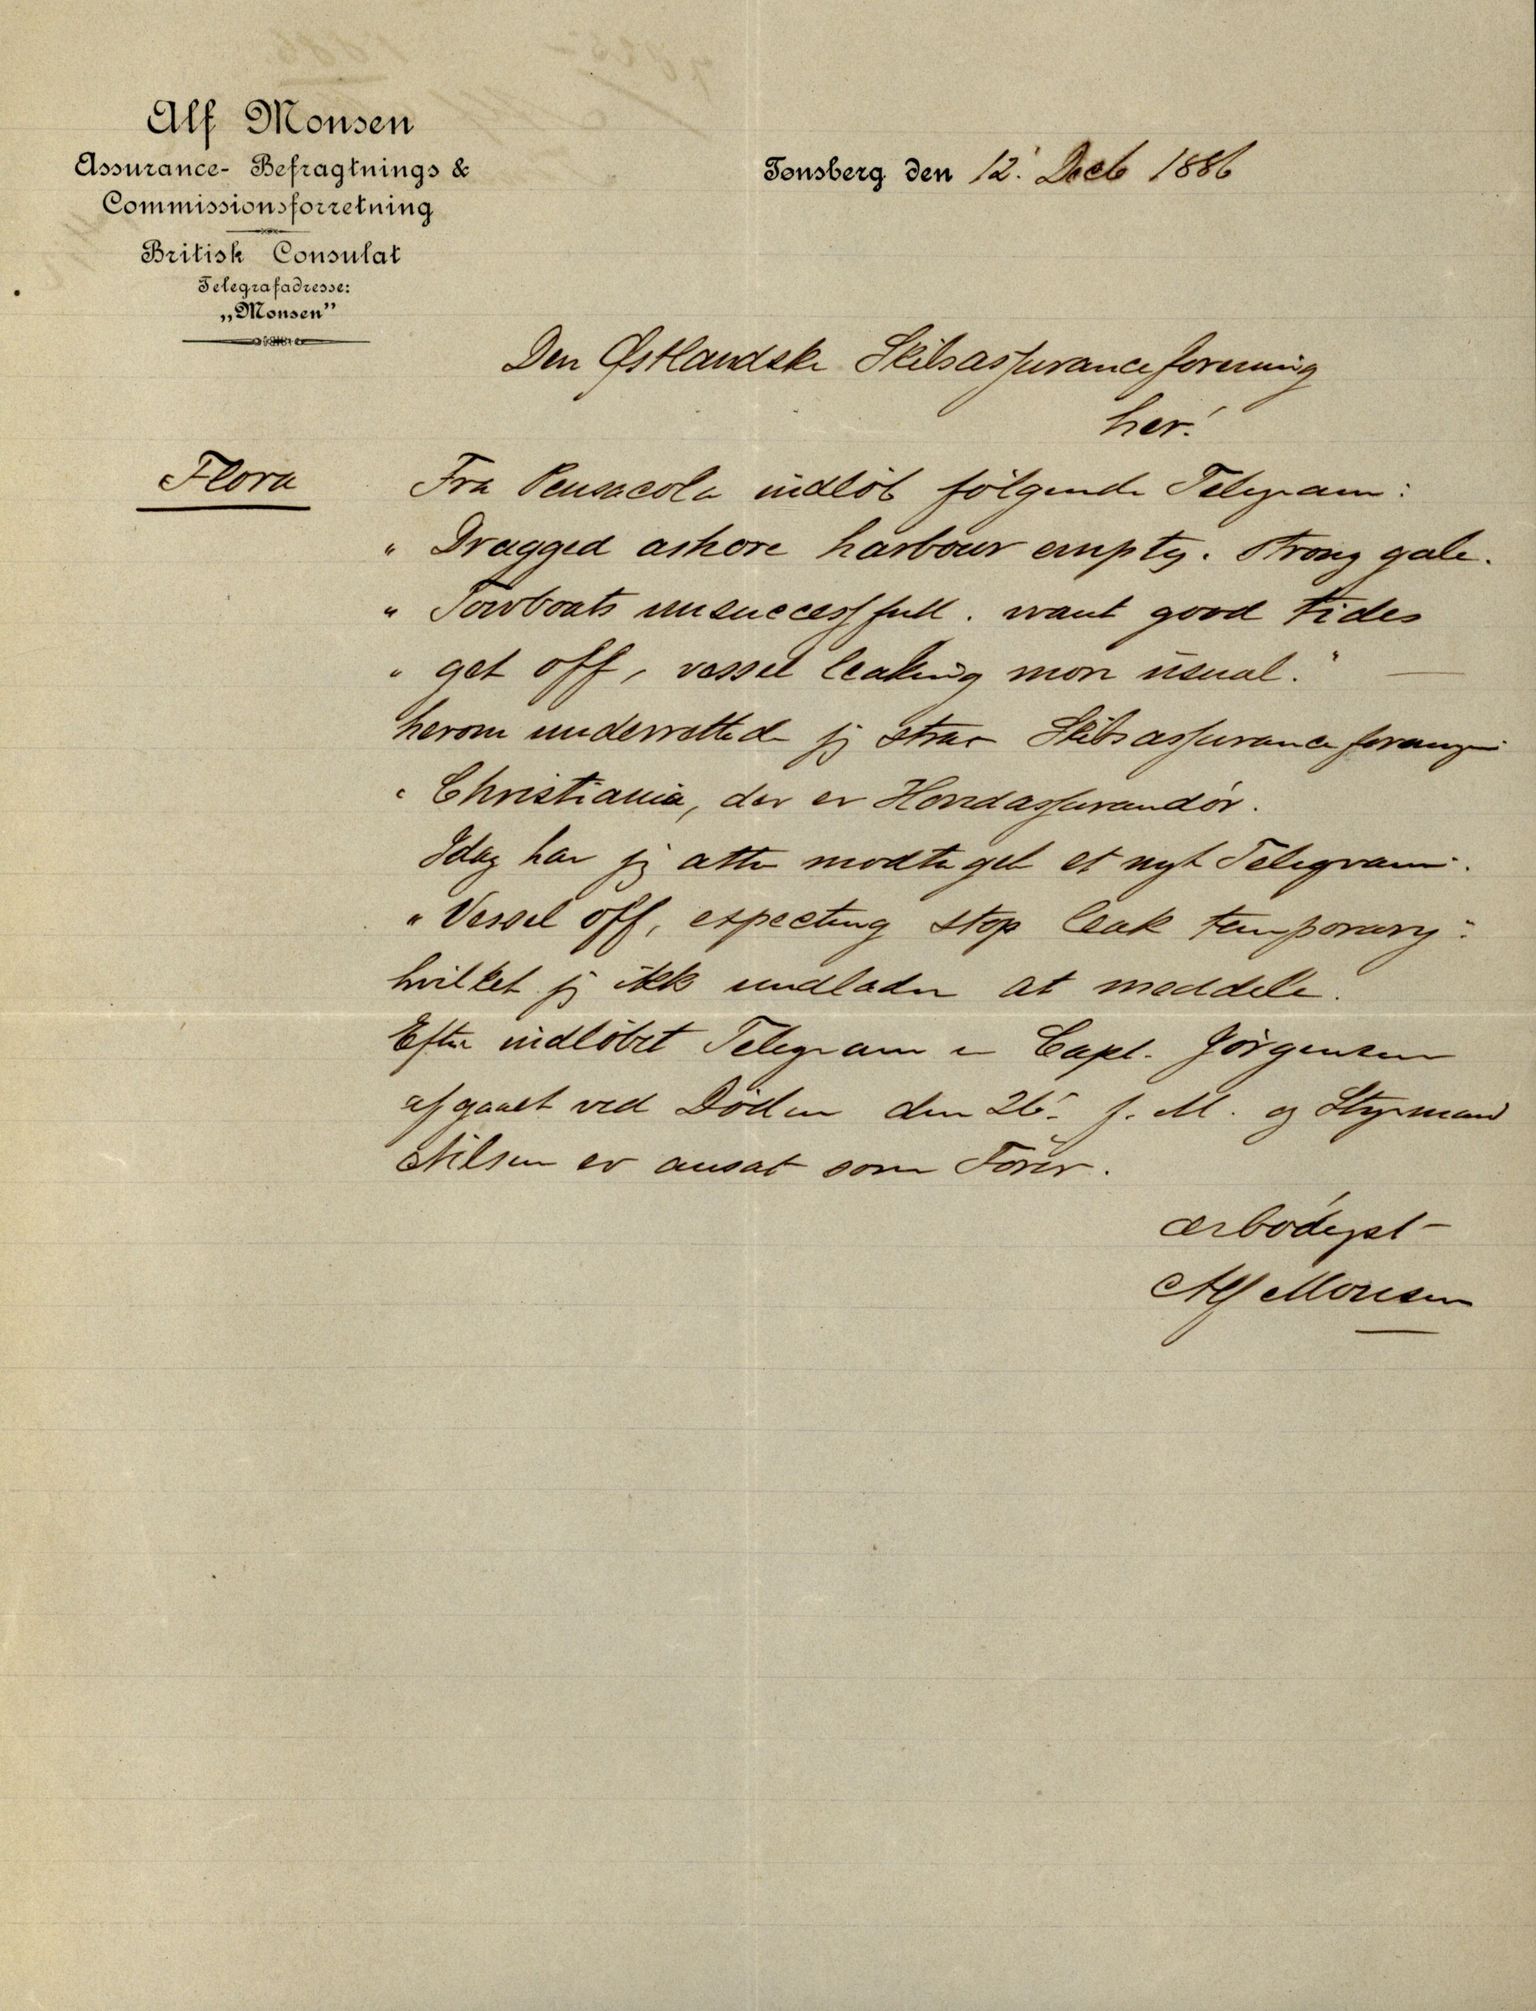 Alf Monsen
Assurance- Befragtnings &
Commissionsforretning
British Consulat
Telegrafadresse:
„Monsen”
Tønsberg den 12' Decb 1886
Den Østlandske Skibsassuranceforening
her!
Flora
Fra Pensacola indløb følgende Telegram:
" Dragged ashore harbour empty. Strong gale.
" Towboats unsuccessfull. want good tides
" get off, vessel leaking more usual."
herom underrettede jeg strax Skibsassuranceforeningen
i Christiania, der er Hovedassurandør.
Idag har jeg atter modtaget et nyt Telegram.
" Vessel off, expecting stop leak temporary"
hvilket jeg ikke undlader at meddele.
Efter indløbet Telegram er Capt. Jørgensen
afgaaet ved Døden den 26' f. M. og Styrmand
Nilsen er ansat som Fører.
ærbødigst
Alf Monsen